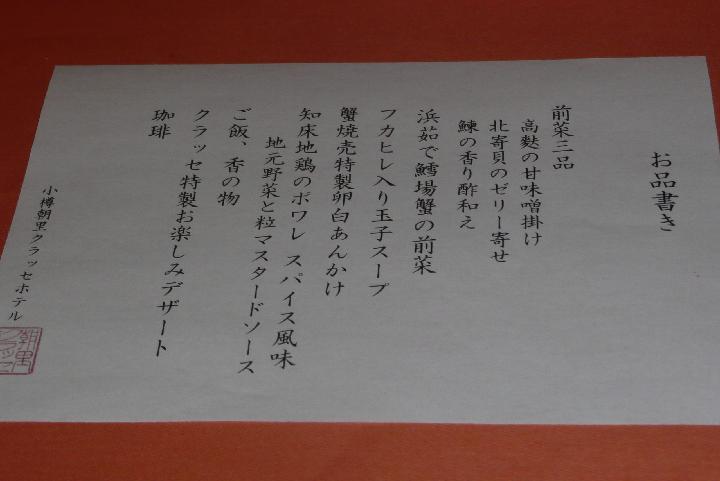 お品書き
前菜三品
高麩の甘味噌掛け
北寄貝のゼリー寄せ
鰊の香り酢和え
浜茹で鱈場蟹の前菜
フカヒレ入り玉子スープ
蟹焼売特製卵白あんかけ
知床地鶏のボワレ スパイス風味
地元野菜と粒マスタードソース
ご飯、香の物
クラッセ特製お楽しみデザート
珈琲
小樽朝里クラッセホテル
朝里クラッセ